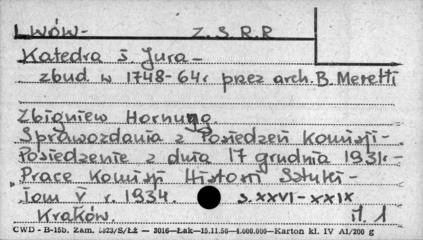 Lwów- Z.S.R.R
Katedra ś. Jura-
zbud w 1748-64r przez arch. B. Meretti
Zbigniew Hornung.
Sprawozdania z Posiedzeń Komisji-
Posiedzenie z dnia 17 grudnia 1931r-
Prace Komisji Historii Sztuki-
Tom V r. 1934. s. XXVI-XXIX
Kraków. il. 1
CWD - B-15b. Zam. 5823/S/ŁŻ — 3016—Łak—15.11.56—4.000.000—Karton kl. IV A1/200 g